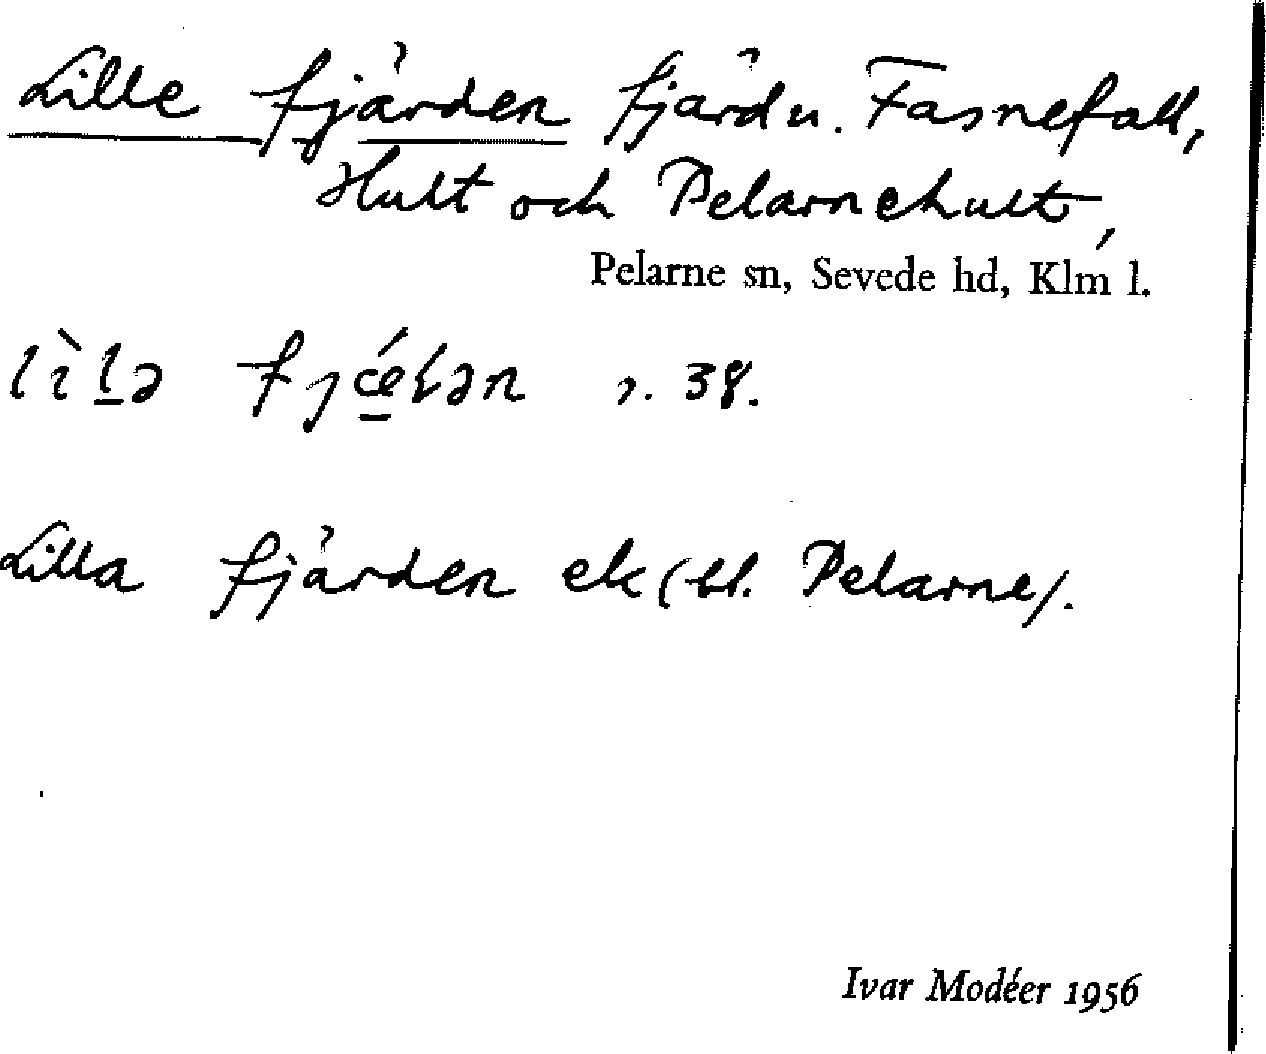 Lille fjärden fjärd u. Fasnefall,
Hult och Pelarnehult,
Pelarne sn, Sevede hd, Klm l.
38.
Lilla fjärden ek (bl. Pelarne).
Ivar Modéer 1956